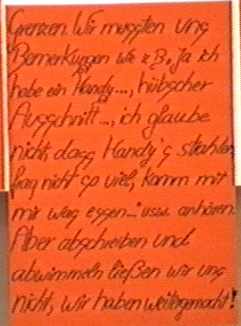 Grenzen. Wir mussten uns
Bemerkungen wie z.B. Ja ich
habe ein Handy..., hübscher
Ausschnitt..., ich glaube
nicht, dass Handy's strahlen,
frag nicht so viel, komm mit
mir was essen..." usw. anhören.
Aber abschreiben und
abwimmeln ließen wir uns
nicht, wir haben weitergemacht!